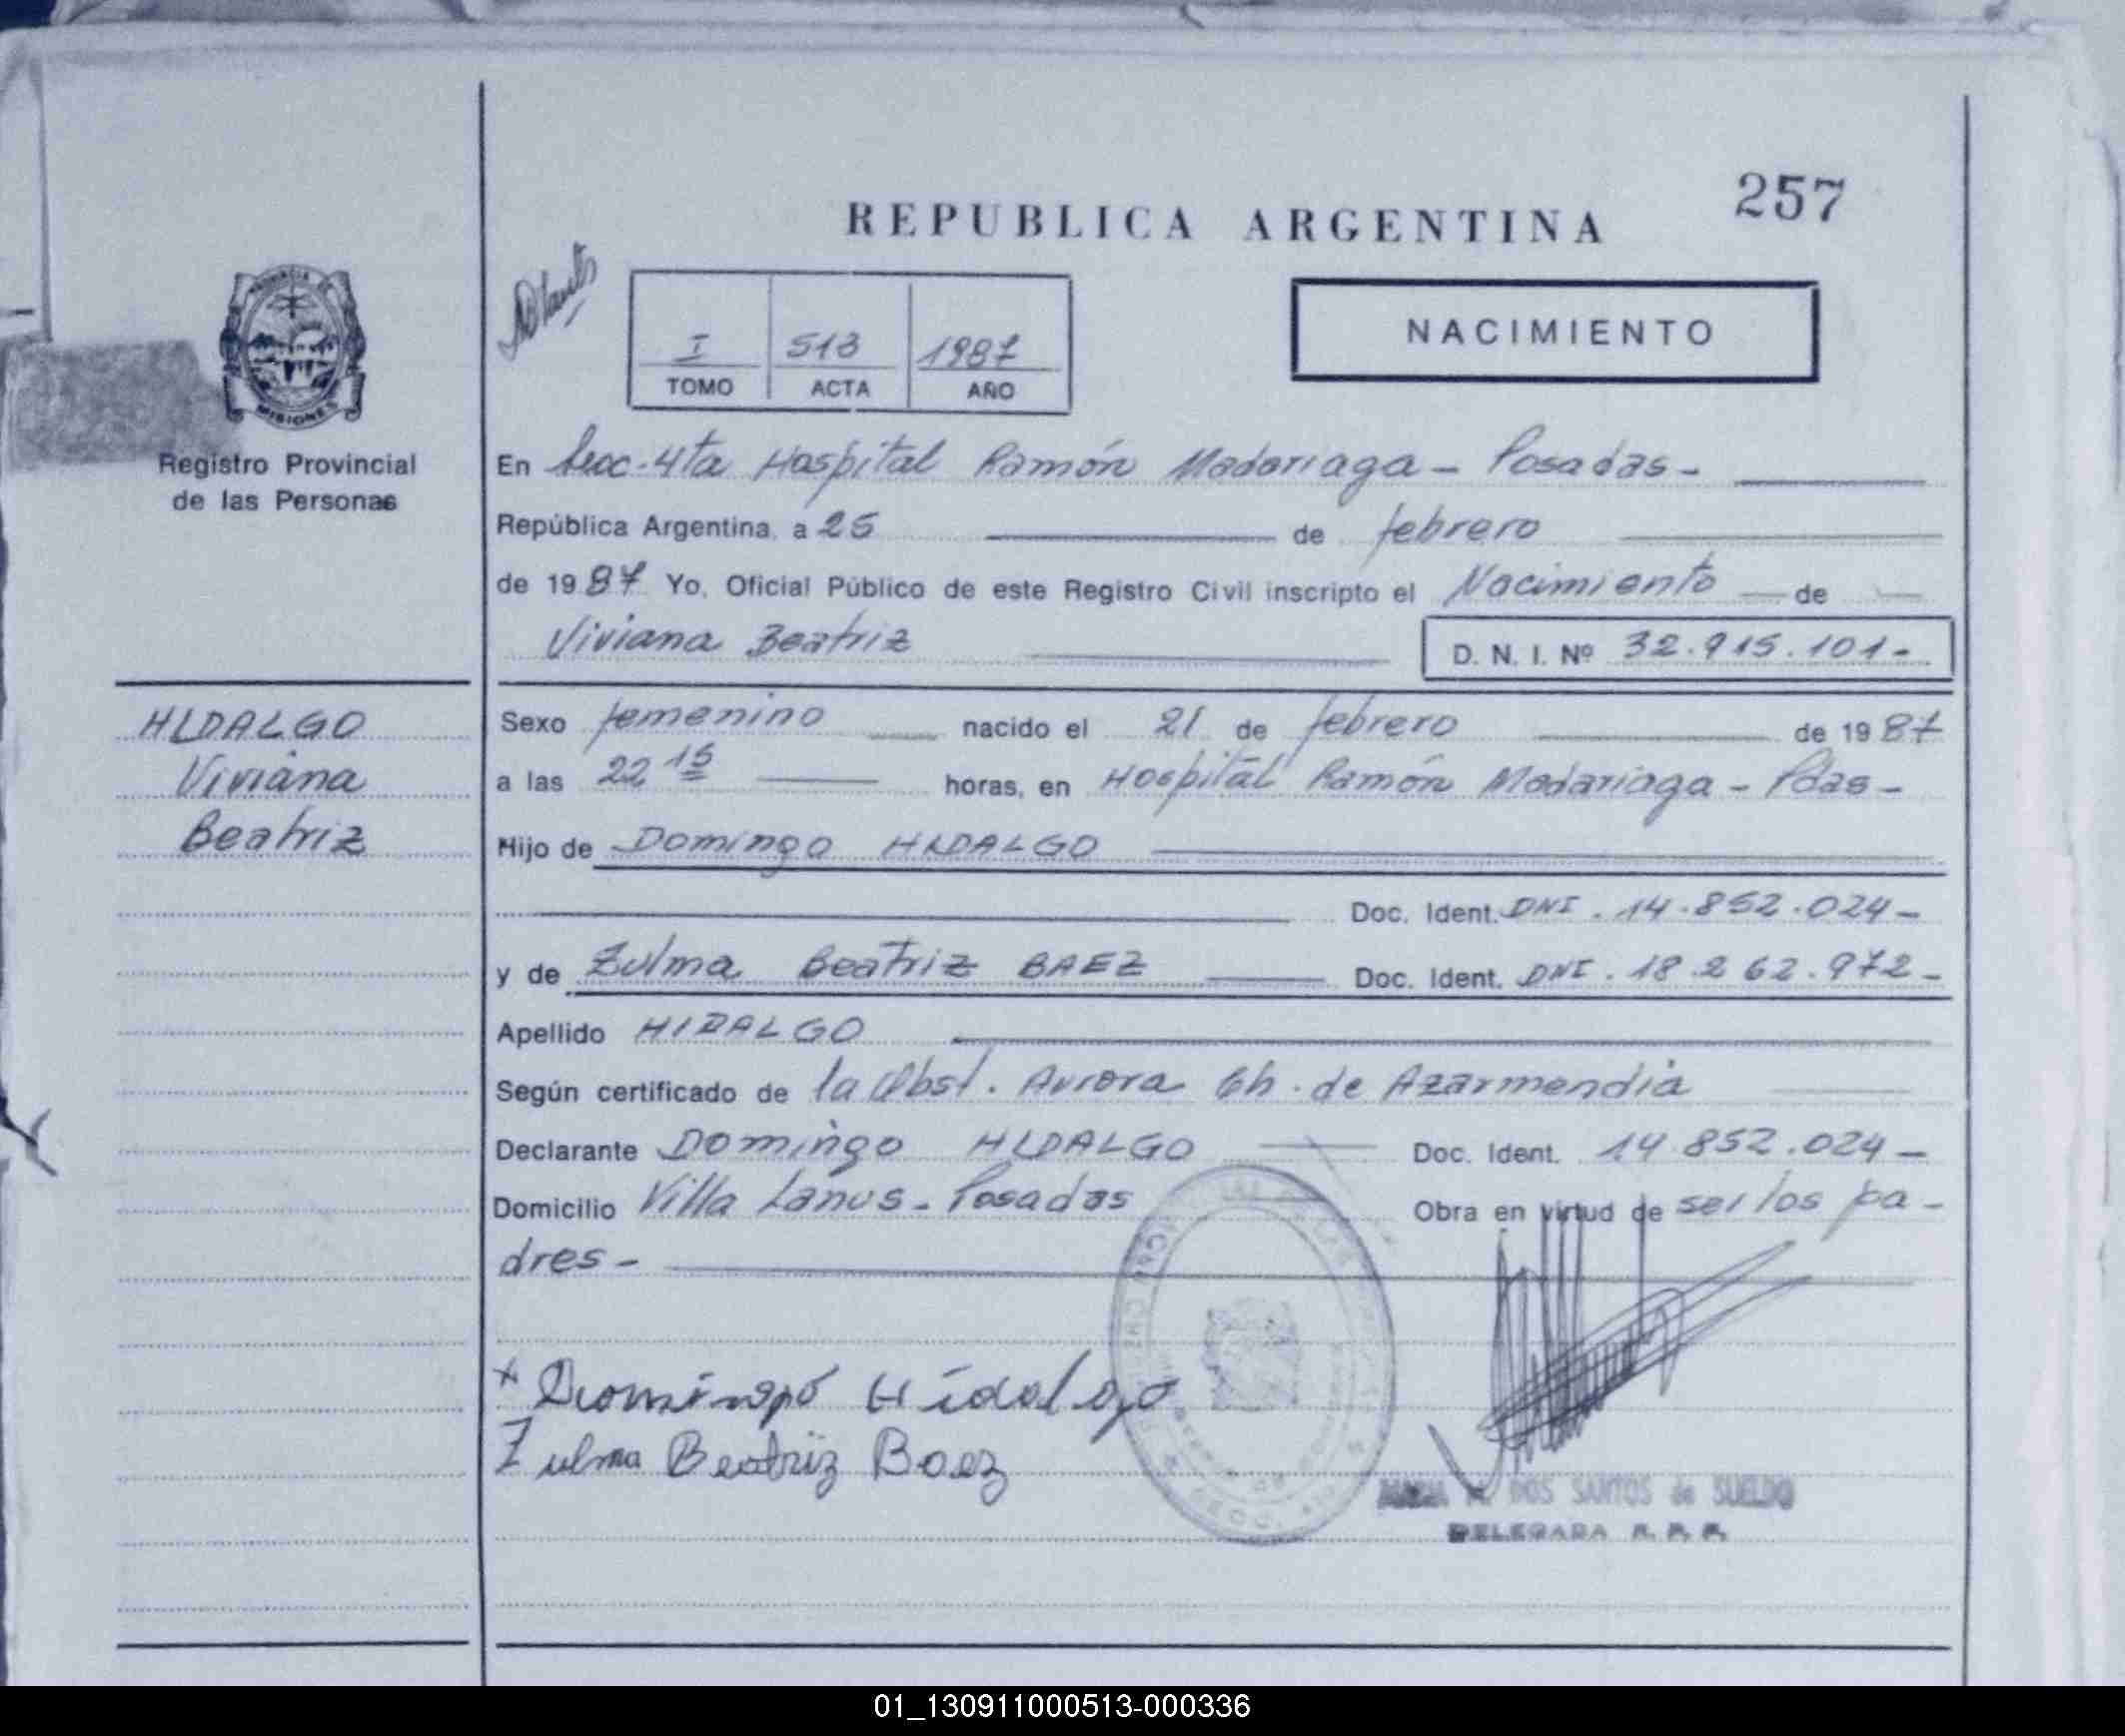 257
REPUBLICA ARGENTINA
NACIMIENTO
I 513 1987
TOMO ACTA AÑO
PROVINCIA DE
MISIONES
Registro Provincial
de las Personas
En Secc. 4ta Hospital Ramón Madariaga - Posadas -
República Argentina, a 25 de febrero
de 1987 Yo, Oficial Público de este Registro Civil inscripto el Nacimiento de
Viviana Beatriz D. N. I. Nº 32.915.101-
HIDALGO
Viviana
Beatriz
Sexo femenino nacido el 21 de febrero de 1987
a las 22 15 horas, en Hospital Ramón Madariaga - Pdas -
Hijo de Domingo HIDALGO
Doc. Ident. DNI. 14.852.024-
y de Zulma Beatriz BAEZ Doc. Ident. DNI. 18.262.972-
Apellido HIDALGO
Según certificado de la Obst. Aurora Ch. de Azarmendia
Declarante Domingo HIDALGO Doc. Ident. 14.852.024-
Domicilio Villa Lanus - Posadas Obra en virtud de ser los pa-
dres -
+ Domingo Hidalgo
Zulma Beatriz Baez
DOS SANTOS de SUELDO
DELEGADA R. P. P.
01_130911000513-000336